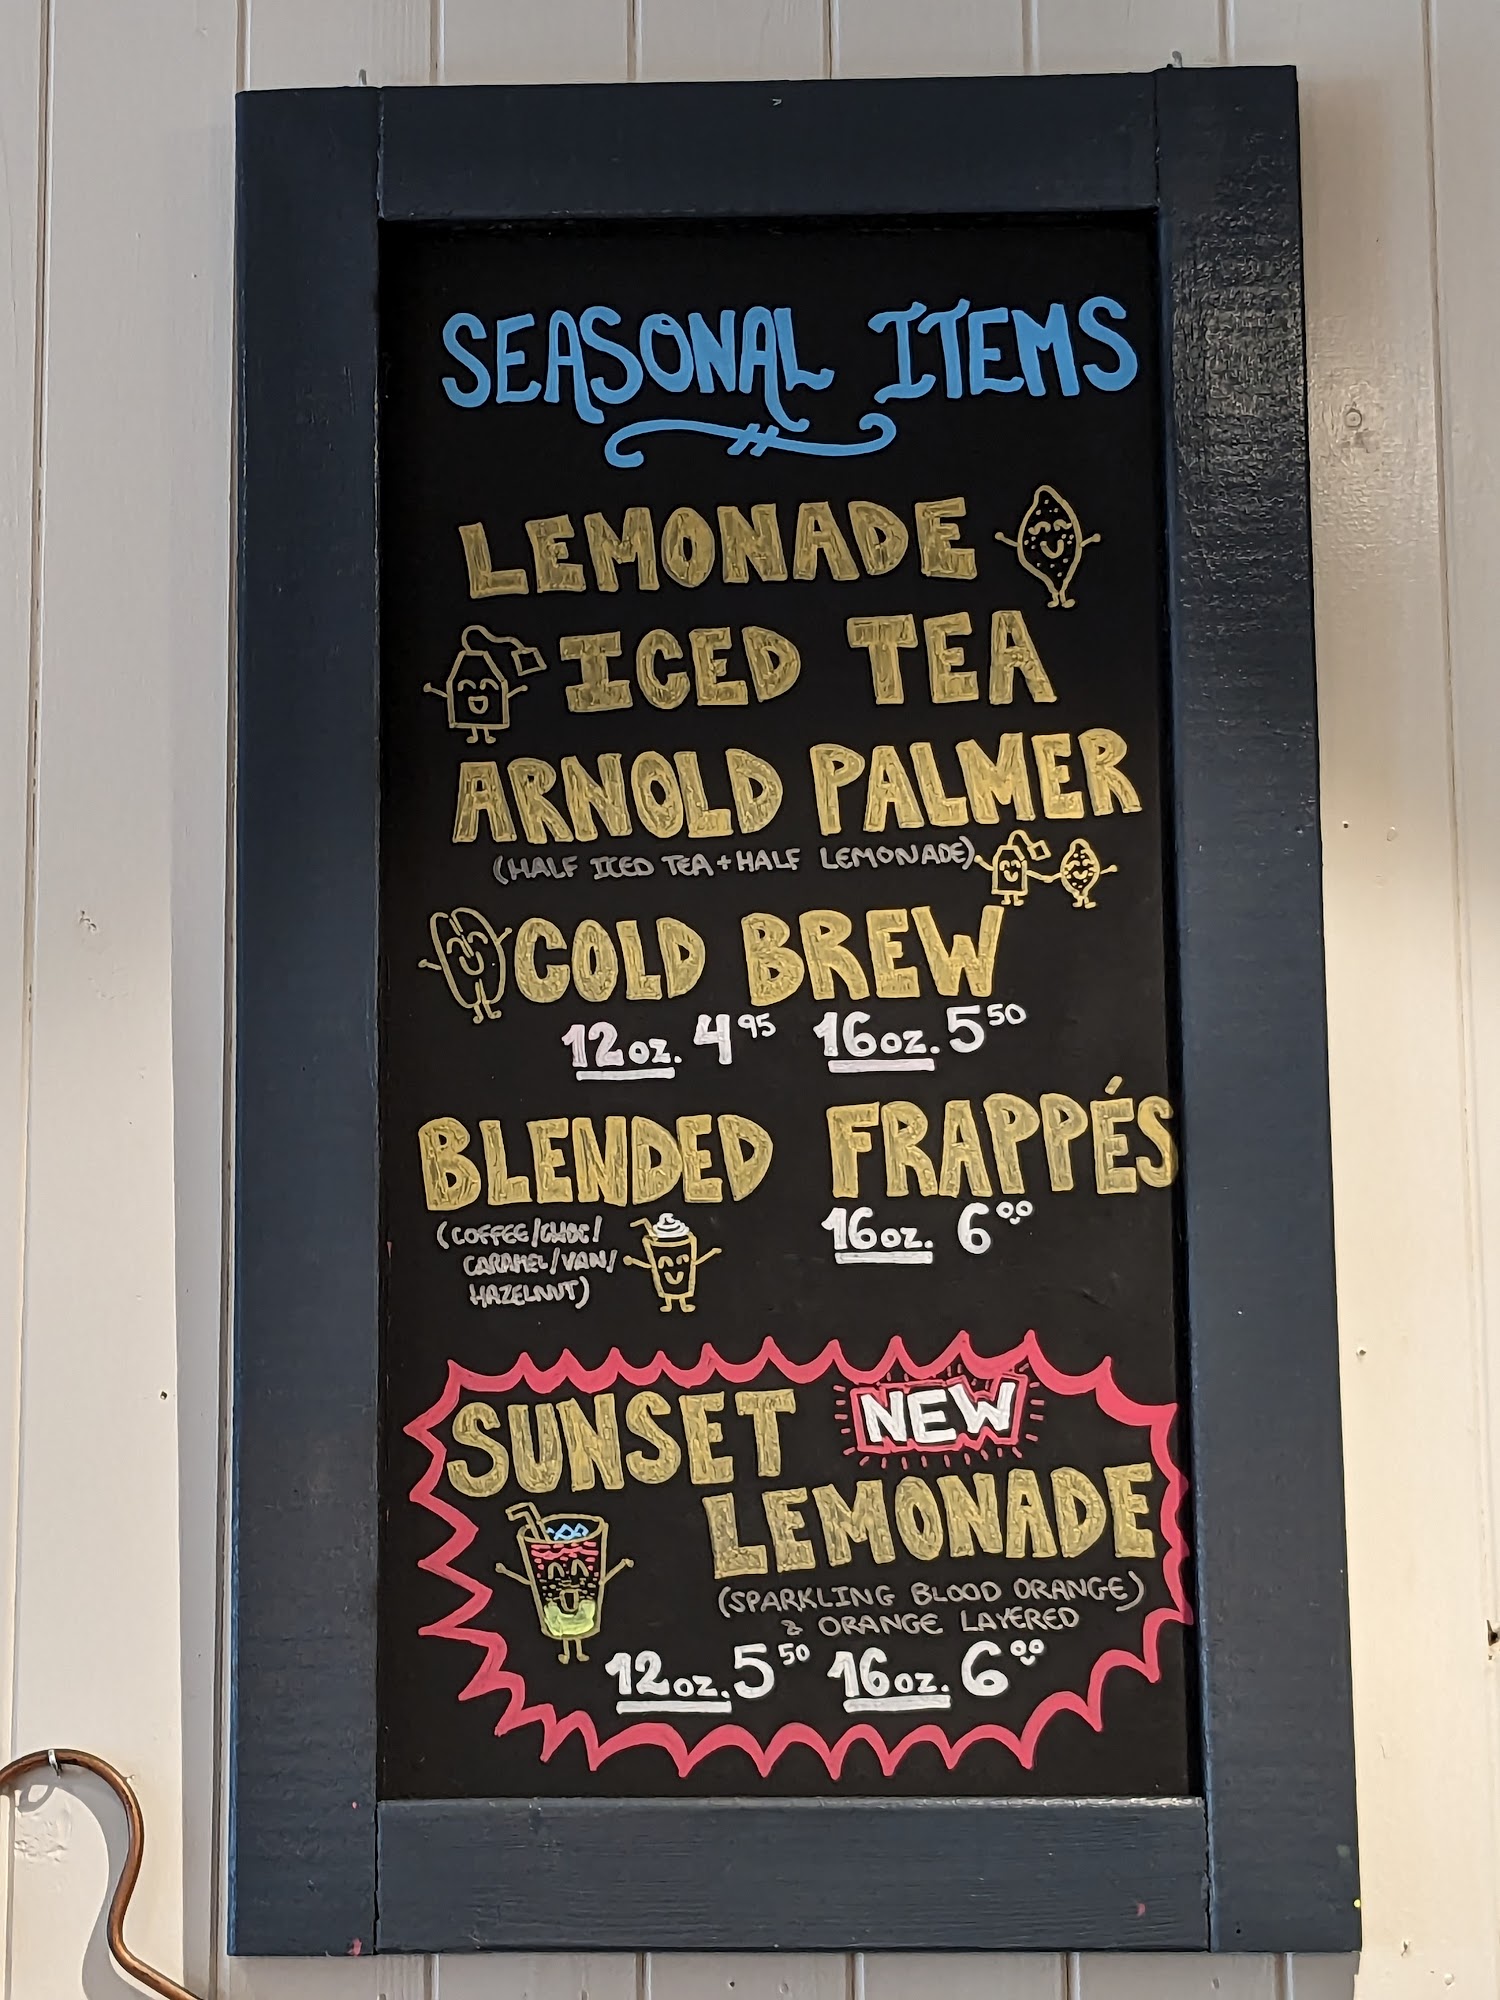 SEASONAL ITEMS
LEMONADE
ICED TEA
ARNOLD PALMER
(HALF ICED TEA + HALF LEMONADE)
COLD BREW
12oz. 4.95 16oz. 5.50
BLENDED FRAPPÉS
(COFFEE/CHOC/ 16oz. 6.00
CARAMEL/VAN/
HAZELNUT)
SUNSET NEW
LEMONADE
(SPARKLING BLOOD ORANGE)
& ORANGE LAYERED
12oz. 5.50 16oz. 6.00